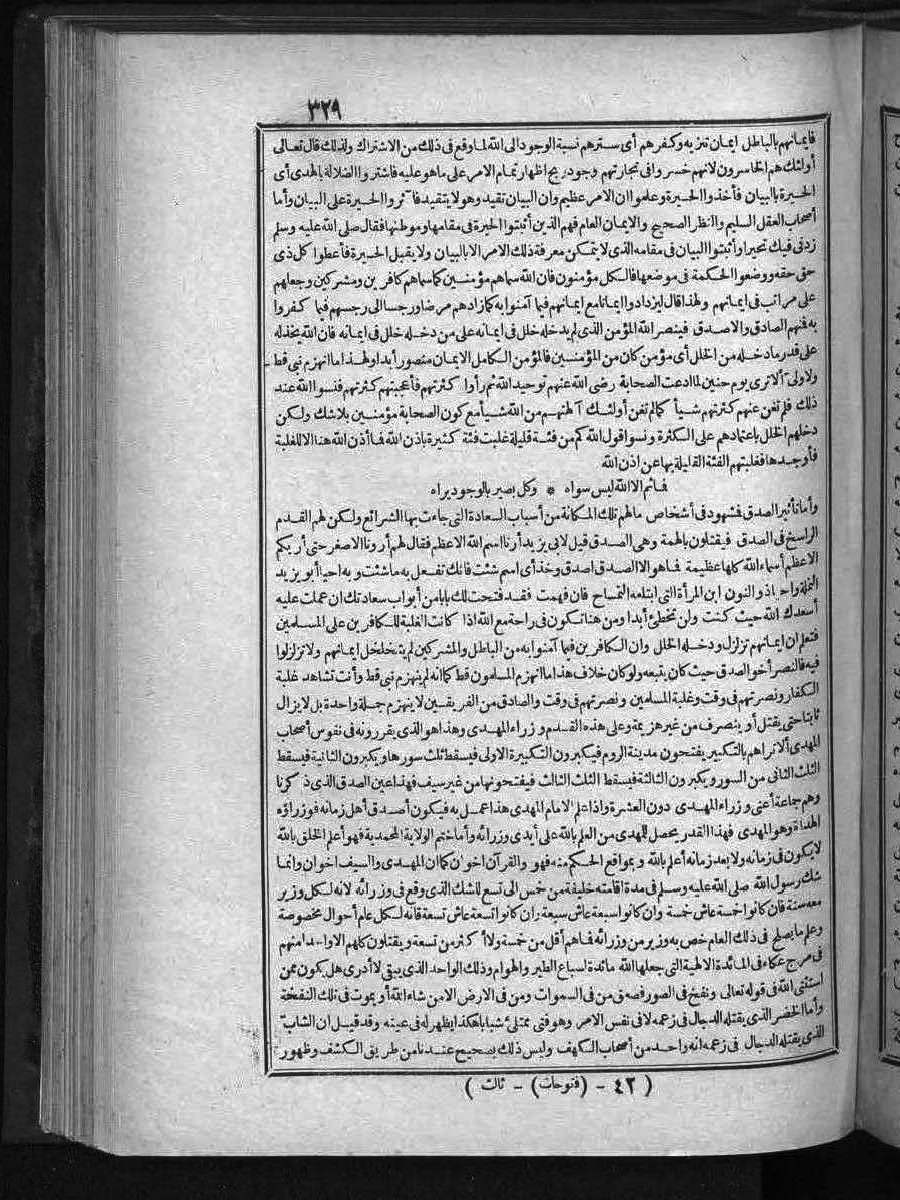 ٣٢٩
فإيمانهم بالباطل إيمان تنزيه وكفرهم أى سترهم نسبة الوجود الى الله لما وقع فى ذلك من الاشتراك ولذلك قال تعالى
أولئك هم الخاسرون لانهم خسروا فى تجارتهم وجود ربح اظهار تمام الامر على ما هو عليه فاشتروا الضلالة بالهدى أى
الحيرة بالبيان فأخذوا الحيرة وعلموا ان الامر عظيم وان البيان تقييد وهو لا يتقيد فآثروا الحيرة على البيان وأما
أصحاب العقل السليم والنظر الصحيح والايمان العام فهم الذين أثبتوا الحيرة فى مقامها وموطنها فقال صلى الله عليه وسلم
زدنى فيك تحيرا وأثبتوا البيان فى مقامه الذى لا يتمكن معرفة ذلك الامر الا بالبيان ولا يقبل الحيرة فأعطوا كل ذى
حق حقه ووضعوا الحكمة فى موضعها فالكل مؤمنون فان الله سماهم مؤمنين كما سماهم كافرين ومشركين وجعلهم
على مراتب فى ايمانهم ولهذا قال ليزدادوا ايمانا مع ايمانهم فيما آمنوا به كما زادهم مرضا ورجسا الى رجسهم فيما كفروا
به فمنهم الصادق والاصدق فينصر الله المؤمن الذى لم يدخله خلل فى ايمانه على من دخله خلل فى ايمانه فان الله يخذله
على قدر ما دخله من الخلل أى مؤمن كان من المؤمنين فالمؤمن الكامل الايمان منصور أبدا ولهذا ما انهزم نبى قط
ولا ولى ألا ترى يوم حنين لما ادعت الصحابة رضى الله عنهم توحيد الله ثم رأوا كثرتهم فأعجبتهم كثرتهم فنسوا الله عند
ذلك فلم تغن عنهم كثرتهم شيأ كما لم تغن أولئك آلهتهم من الله شيأ مع كون الصحابة مؤمنين بلا شك ولكن
دخلهم الخلل باعتمادهم على الكثرة ونسوا قول الله كم من فئة قليلة غلبت فئة كثيرة باذن الله فما أذن الله هنا الا للغلبة
فأوجدها فغلبتهم الفئة القليلة بها عن اذن الله
فما ثم الا الله ليس سواه * وكل بصير بالوجود يراه
وأما تأثير الصدق فمشهود فى أشخاص ما لهم تلك المكانة من أسباب السعادة التى جاءت بها الشرائع ولكن لهم القدم
الراسخ فى الصدق فيقتلون بالهمة وهى الصدق قيل لابى يزيد أرنا اسم الله الاعظم فقال لهم أرونا الاصغر حتى أريكم
الاعظم أسماء الله كلها عظيمة فما هو الا الصدق اصدق وخذ أى اسم شئت فانك تفعل به ما شئت وبه احيا أبو يزيد
النملة واحيا ذو النون ابن المرأة التى ابتلعه التمساح فان فهمت فقد فتحت لك بابا من أبواب سعادتك ان عملت عليه
أسعدك الله حيث كنت ولن تخطئ أبدا ومن هنا تكون فى راحة مع الله اذا كانت الغلبة للكافرين على المسلمين
فتعلم ان ايمانهم تزلزل ودخله الخلل وان الكافرين فيما آمنوا به من الباطل والمشركين لم يتخلخل ايمانهم ولا تزلزلوا
فيه فالنصر أخو الصدق حيث كان يتبعه ولو كان خلاف هذا ما انهزم المسلمون قط كما انه لم ينهزم نبى قط وأنت تشاهد غلبة
الكفار ونصرتهم فى وقت وغلبة المسلمين ونصرتهم فى وقت والصادق من الفريقين لا ينهزم جملة واحدة بل لا يزال
ثابتا حتى يقتل أو ينصرف من غير هزيمة وعلى هذه القدم وزراء المهدى وهذا هو الذى يقررونه فى نفوس أصحاب
المهدى ألا تراهم بالتكبير يفتحون مدينة الروم فيكبرون التكبيرة الاولى فيسقط ثلث سورها ويكبرون الثانية فيسقط
الثلث الثانى من السور ويكبرون الثالثة فيسقط الثلث الثالث فيفتحونها من غير سيف فهذا عين الصدق الذى ذكرنا
وهم جماعة أعنى وزراء المهدى دون العشرة واذا علم الامام المهدى هذا عمل به فيكون أصدق أهل زمانه فوزراؤه
الهداة وهو المهدى فهذا القدر يحصل للمهدى من العلم بالله على أيدى وزرائه وأما ختم الولاية المحمدية فهو أعلم الخلق بالله
لا يكون فى زمانه ولا بعد زمانه أعلم بالله وبمواقع الحكم منه فهو والقرآن اخوان كما ان المهدى والسيف اخوان وانما
شك رسول الله صلى الله عليه وسلم فى مدة اقامته خليفة من خمس الى تسع للشك الذى وقع فى وزرائه لانه لكل وزير
معه سنة فان كانوا خمسة عاش خمسة وان كانوا سبعة عاش سبعة وان كانوا تسعة عاش تسعة فانه لكل عام أحوال مخصوصة
وعلم ما يصلح فى ذلك العام خص به وزير من وزرائه فما هم أقل من خمسة ولا أكثر من تسعة ويقتلون كلهم الا واحدا منهم
فى مرج عكاء فى المائدة الالهية التى جعلها الله مائدة لسباع الطير والهوام وذلك الواحد الذى يبقى لا أدرى هل يكون ممن
استثنى الله فى قوله تعالى ونفخ فى الصور فصعق من فى السموات ومن فى الارض الا من شاء الله أو يموت فى تلك النفخة
وأما الخضر الذى يقتله الدجال فى زعمه لا فى نفس الامر وهو فتى ممتلئ شبابا هكذا يظهر له فى عينه وقد قيل ان الشاب
الذى يقتله الدجال فى زعمه انه واحد من أصحاب الكهف وليس ذلك بصحيح عندنا من طريق الكشف وظهور
( ٤٢ - (فتوحات) - ثالث )